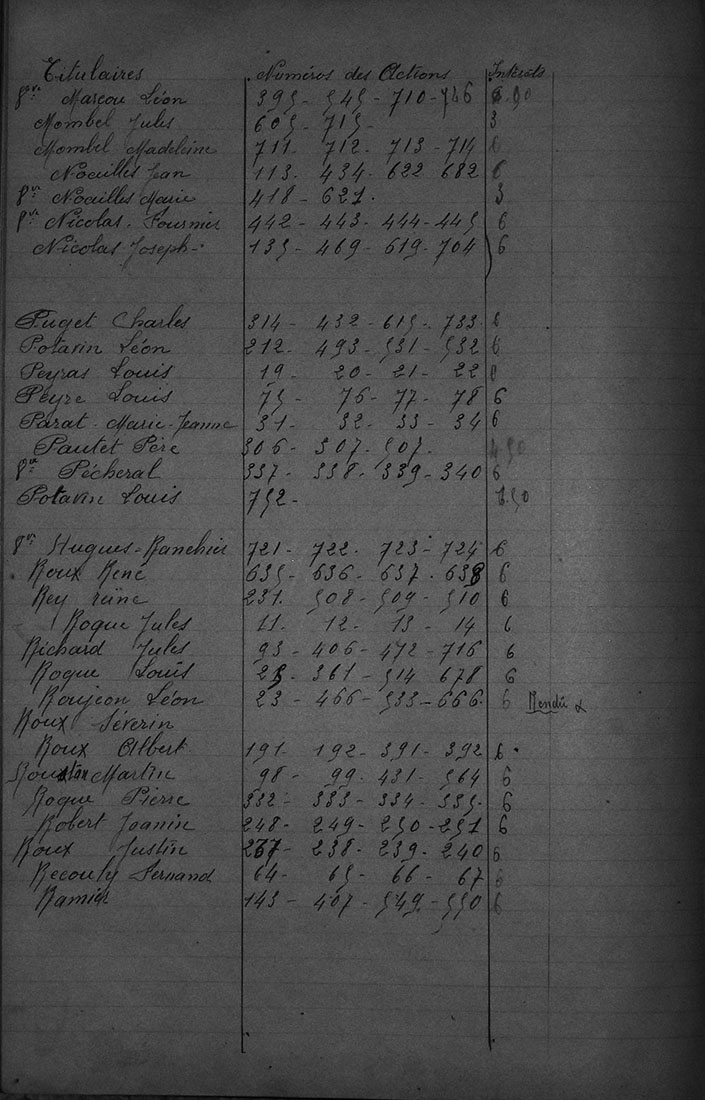 Titulaires Numéros des Actions Intérêts
Vve Marcou Léon 395 - 545 - 710 - 746
Mombel Jules 605 - 715 - 3
Mombel Madeleine 711 - 712 - 713 - 714 6
Noailles Jean 113 - 434 - 622 682 6
Vve Noailles Marie 418 - 621 - 3
Vve Nicolas - Fournier 442 - 443 - 444 - 445 6
Nicolas Joseph - 135 - 469 - 619 - 704 6
Puget Charles 314 - 432 - 615 - 733 6
Potavin Léon 212 - 493 - 531 - 532 6
Peyras Louis 19 - 20 - 21 - 22
Peyre Louis 75 - 76 - 77 - 78 6
Parat - Marie - Jeanne 31 - 32 - 33 - 34 6
Pautet Père 306 - 307 - 507 - 4.50
Vve Pécheral 337 - 338 - 339 - 340 6
Potavin Louis 752 -
Vve Hugues - Ranchier 721 - 722 - 723 - 724 6
Roux René 635 - 636 - 637 - 638 6
Rey reine 231 - 508 - 509 - 510 6
Roque Jules 11 - 12 - 13 - 14 6
Richard Jules 93 - 406 - 472 - 716 6
Roque Louis 361 - 514 - 678 6
Roujeon Léon 23 - 466 - 533 - 666 6 Rendu
Roux Séverin
Roux Albert 191 - 192 - 391 - 392 6
Martin 98 - 99 - 431 - 564 6
Roque Pierre 332 - 333 - 334 - 335 - 6
Robert Joanin 248 - 249 - 250 - 251 6
Roux Justin 237 - 238 - 239 - 240 6
Recouly Fernand 64 - 65 - 66 - 67 6
Ramier 143 - 407 - 549 - 550 6